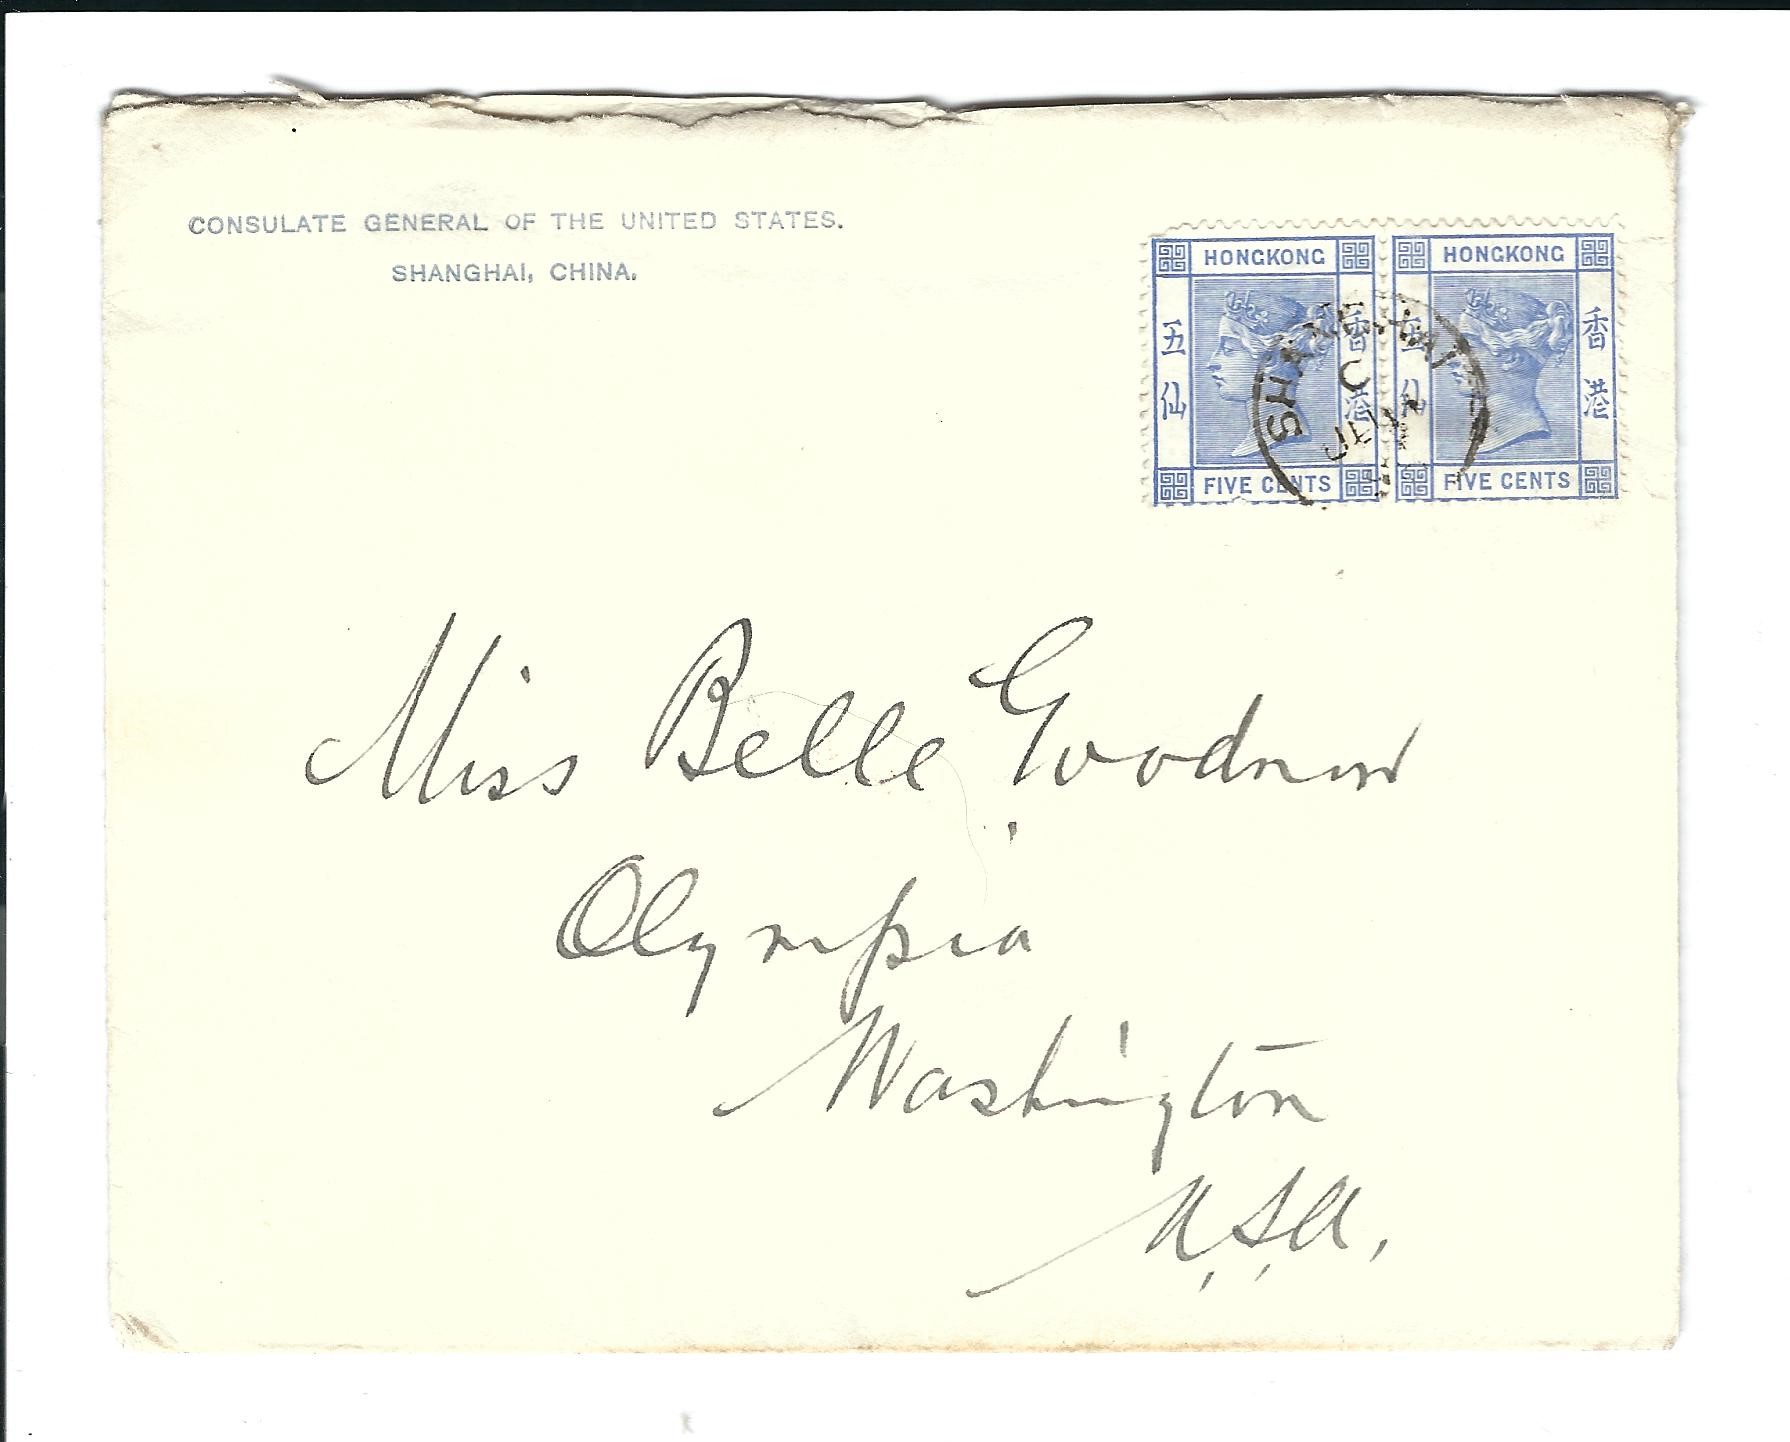 CONSULATE GENERAL OF THE UNITED STATES.
SHANGHAI, CHINA.
HONGKONG
五仙
香港
FIVE CENTS
HONGKONG
五仙
香港
FIVE CENTS
SHANGHAI
Miss Belle Goodnow
Olympia
Washington
U.S.A.